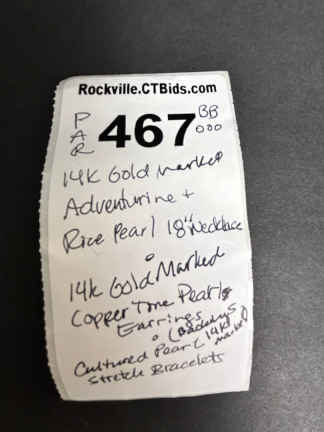 Rockville.CTBids.com
PAR 467 BB
000
14K Gold Marked
Adventurine +
Rice Pearl 18" Necklace
14k Gold Marked
Copper Tone Pearls
Earrings
(Backings 14K marked)
Cultured Pearl
Stretch Bracelets